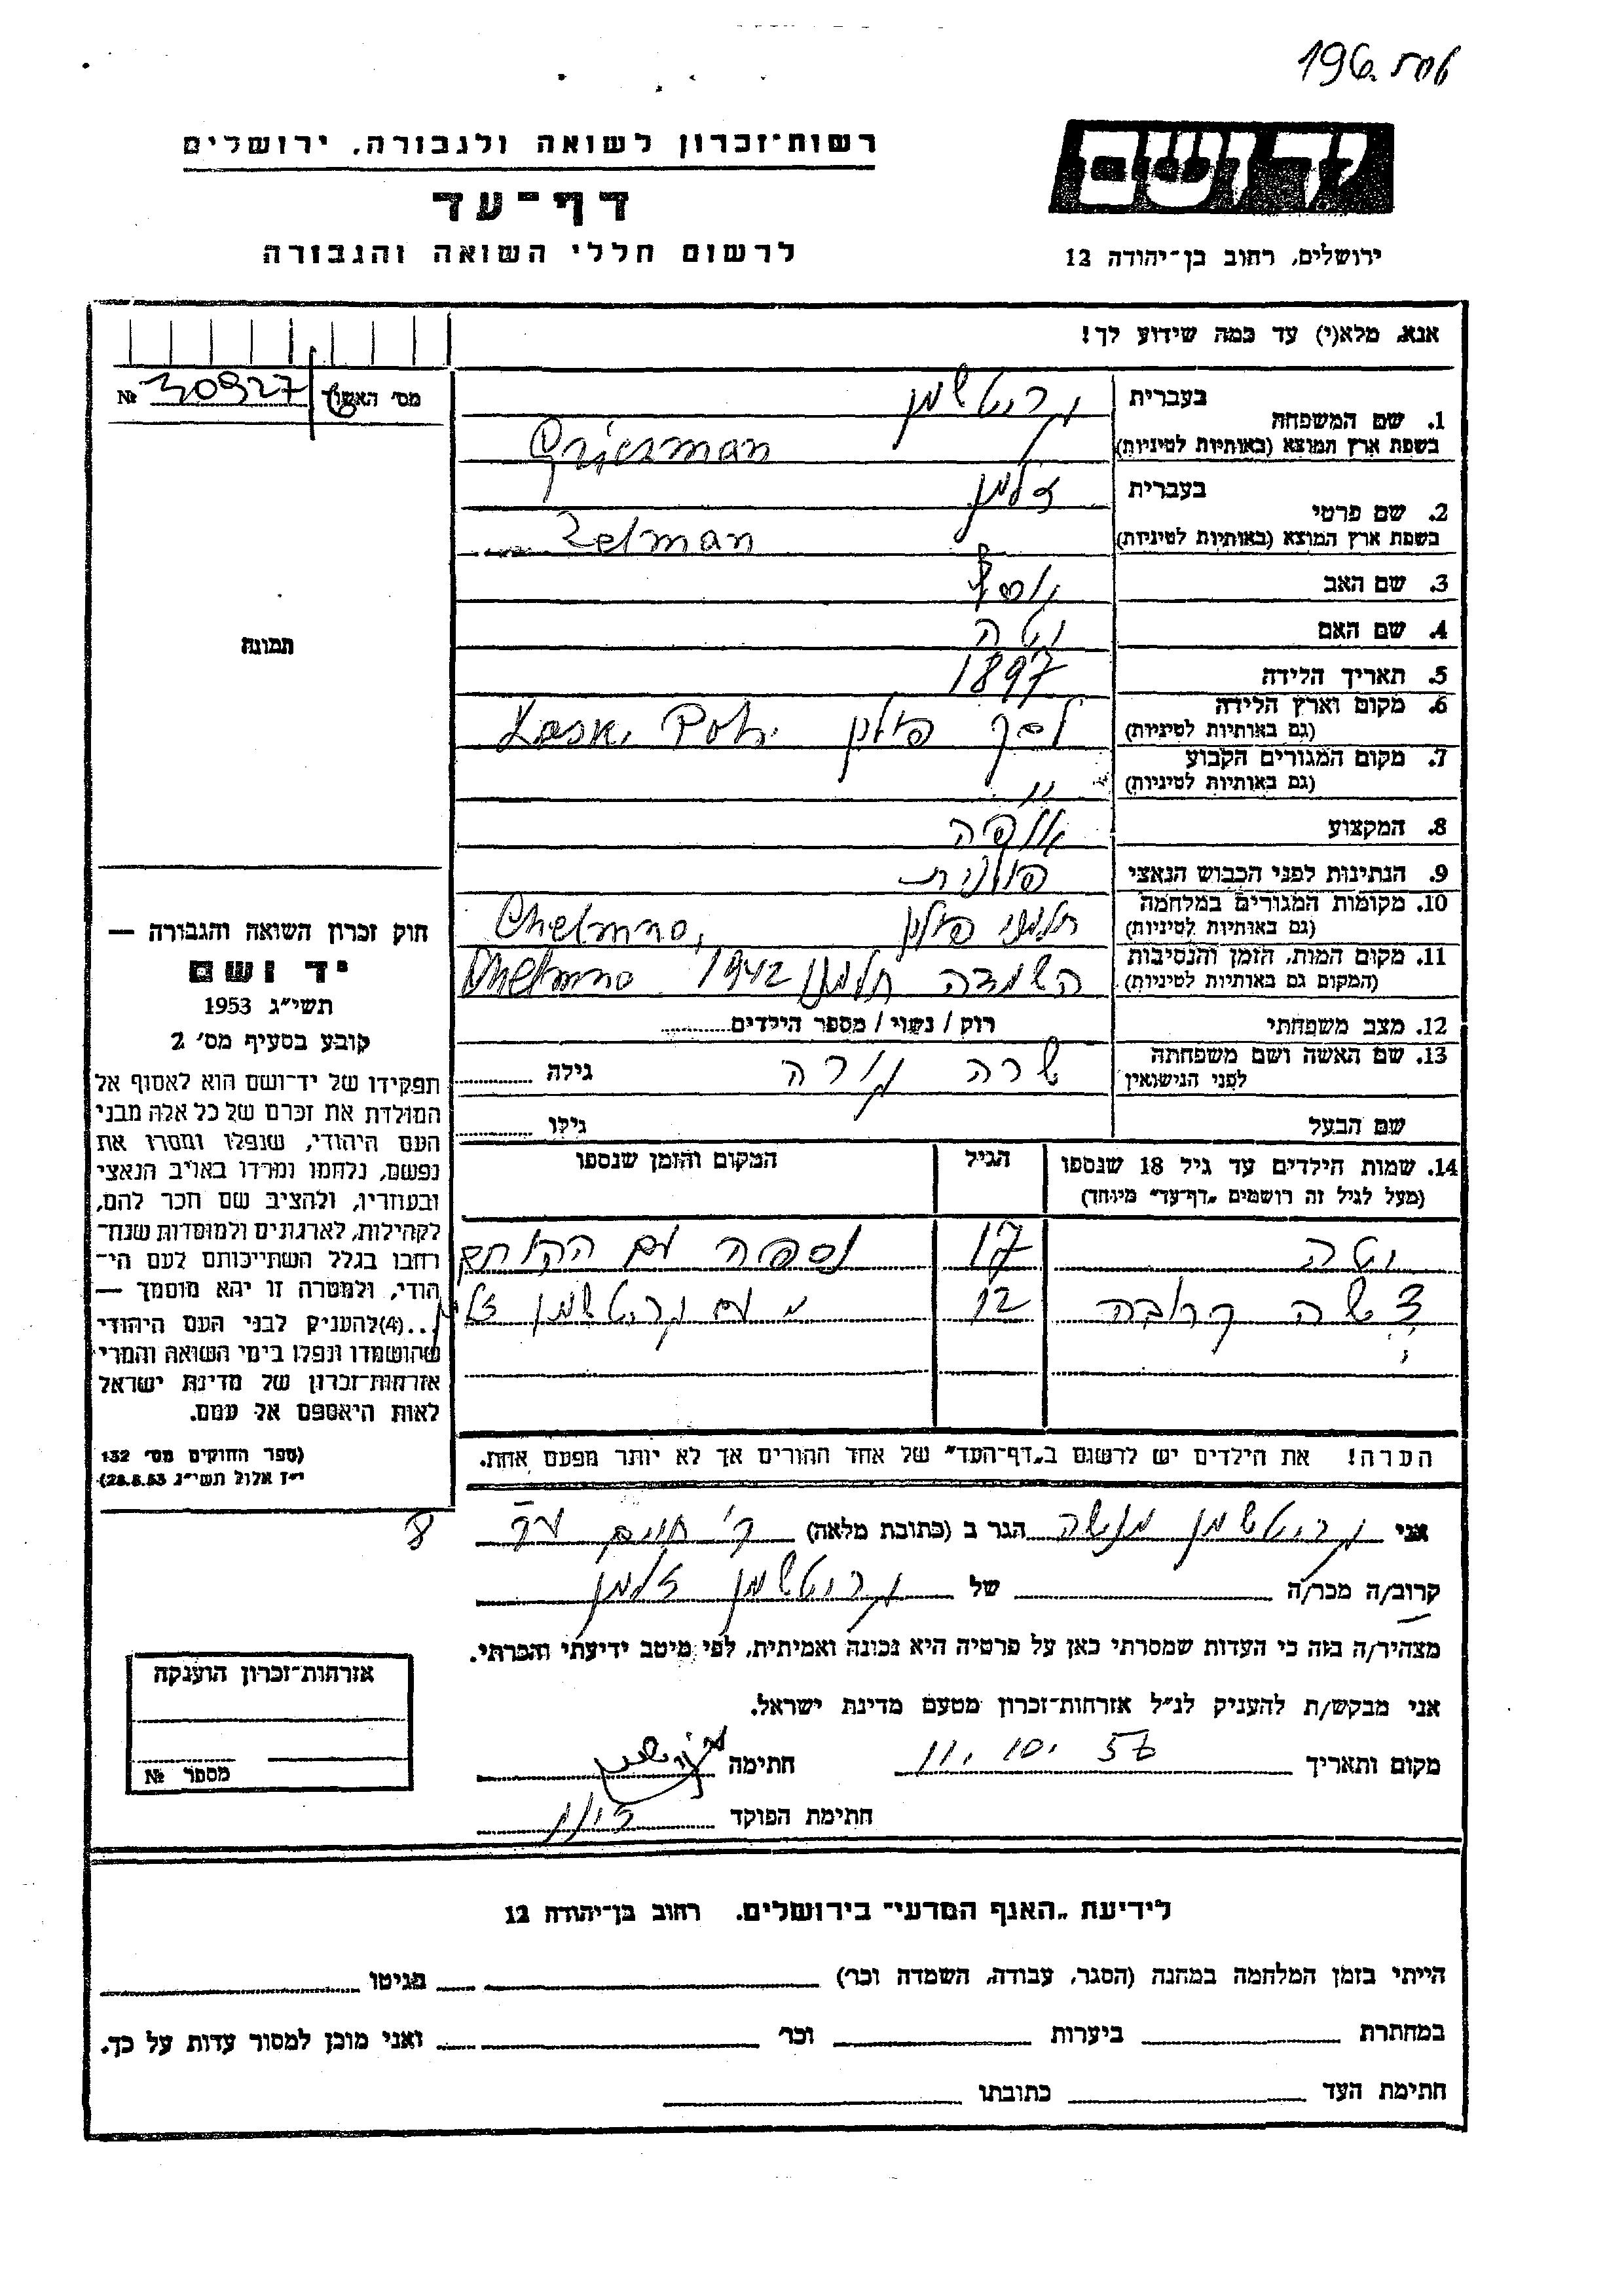 196
יד ושם
ירושלים, רחוב בן-יהודה 12
רשות-זכרון לשואה ולגבורה, ירושלים
דף-עד
לרשום חללי השואה והגבורה
אנא, מלא(י) עד כמה שידוע לך!
מס' האשה № 30927
1. שם המשפחה בעברית גריטשמן
בשפת ארץ המוצא (באותיות לטיניות)
2. שם פרטי בעברית זלמן
בשפת ארץ המוצא (באותיות לטיניות) Zelman
3. שם האב יוסף
4. שם האם יטה
5. תאריך הלידה 1897
6. מקום וארץ הלידה לסק פולין
(גם באותיות לטיניות) Lask,
7. מקום המגורים הקבוע
(גם באותיות לטיניות) "
8. המקצוע אופה
9. הנתינות לפני הכבוש הנאצי פולנית
10. מקומות המגורים במלחמה חלמנו פולין Chelmno,
(גם באותיות לטיניות)
11. מקום המות, הזמן והנסיבות השמדה חלמנו 1942 Chelmno
(המקום גם באותיות לטיניות)
12. מצב משפחתי רוק / נשוי / מספר הילדים
13. שם האשה ושם משפחתה שרה גילה
לפני הנישואין
שם הבעל גילו
14. שמות הילדים עד גיל 18 שנספו הגיל המקום והזמן שנספו
(מעל לגיל זה רושמים "דף-עד" מיוחד)
יטה 17 נספה עם
קרובה 12 עם גריטשמן
הערה! את הילדים יש לרשום ב"דף-העד" של אחד ההורים אך לא יותר מפעם אחת.
תמונה
חוק זכרון השואה והגבורה —
יד ושם
תשי"ג 1953
קובע בסעיף מס' 2
תפקידו של יד-ושם הוא לאסוף אל
המולדת את זכרם של כל אלה מבני
העם היהודי, שנפלו ומסרו את
נפשם, נלחמו ומרדו באויב הנאצי
ובעוזריו, ולהציב שם וזכר להם,
לקהילות, לארגונים ולמוסדות שנח-
רבו בגלל השתייכותם לעם הי-
הודי, ולמטרה זו יהא מוסמך —
...(4) להעניק לבני העם היהודי
שהושמדו ונפלו בימי השואה והמרי
אזרחות-זכרון של מדינת ישראל
לאות היאספם אל עמם.
(ספר החוקים מס' 132
י"ז אלול תשי"ג 28.8.53)
אני גריטשמן מנשה הגר ב (כתובת מלאה) ק' חיים 8
קרוב/ה מכר/ה של גריטשמן זלמן
מצהיר/ה בזה כי העדות שמסרתי כאן על פרטיה היא נכונה ואמיתית, לפי מיטב ידיעתי והכרתי.
אני מבקש/ת להעניק לנ"ל אזרחות-זכרון מטעם מדינת ישראל.
מקום ותאריך 11. 10. 56 חתימה
חתימת הפוקד
אזרחות-זכרון הוענקה
מספר №
לידיעת "האגף המדעי" בירושלים. רחוב בן-יהודה 12
הייתי בזמן המלחמה במחנה (הסגר, עבודה, השמדה וכר') בגיטו
במחתרת ביערות וכר' ואני מוכן למסור עדות על כך.
חתימת העד כתובתו